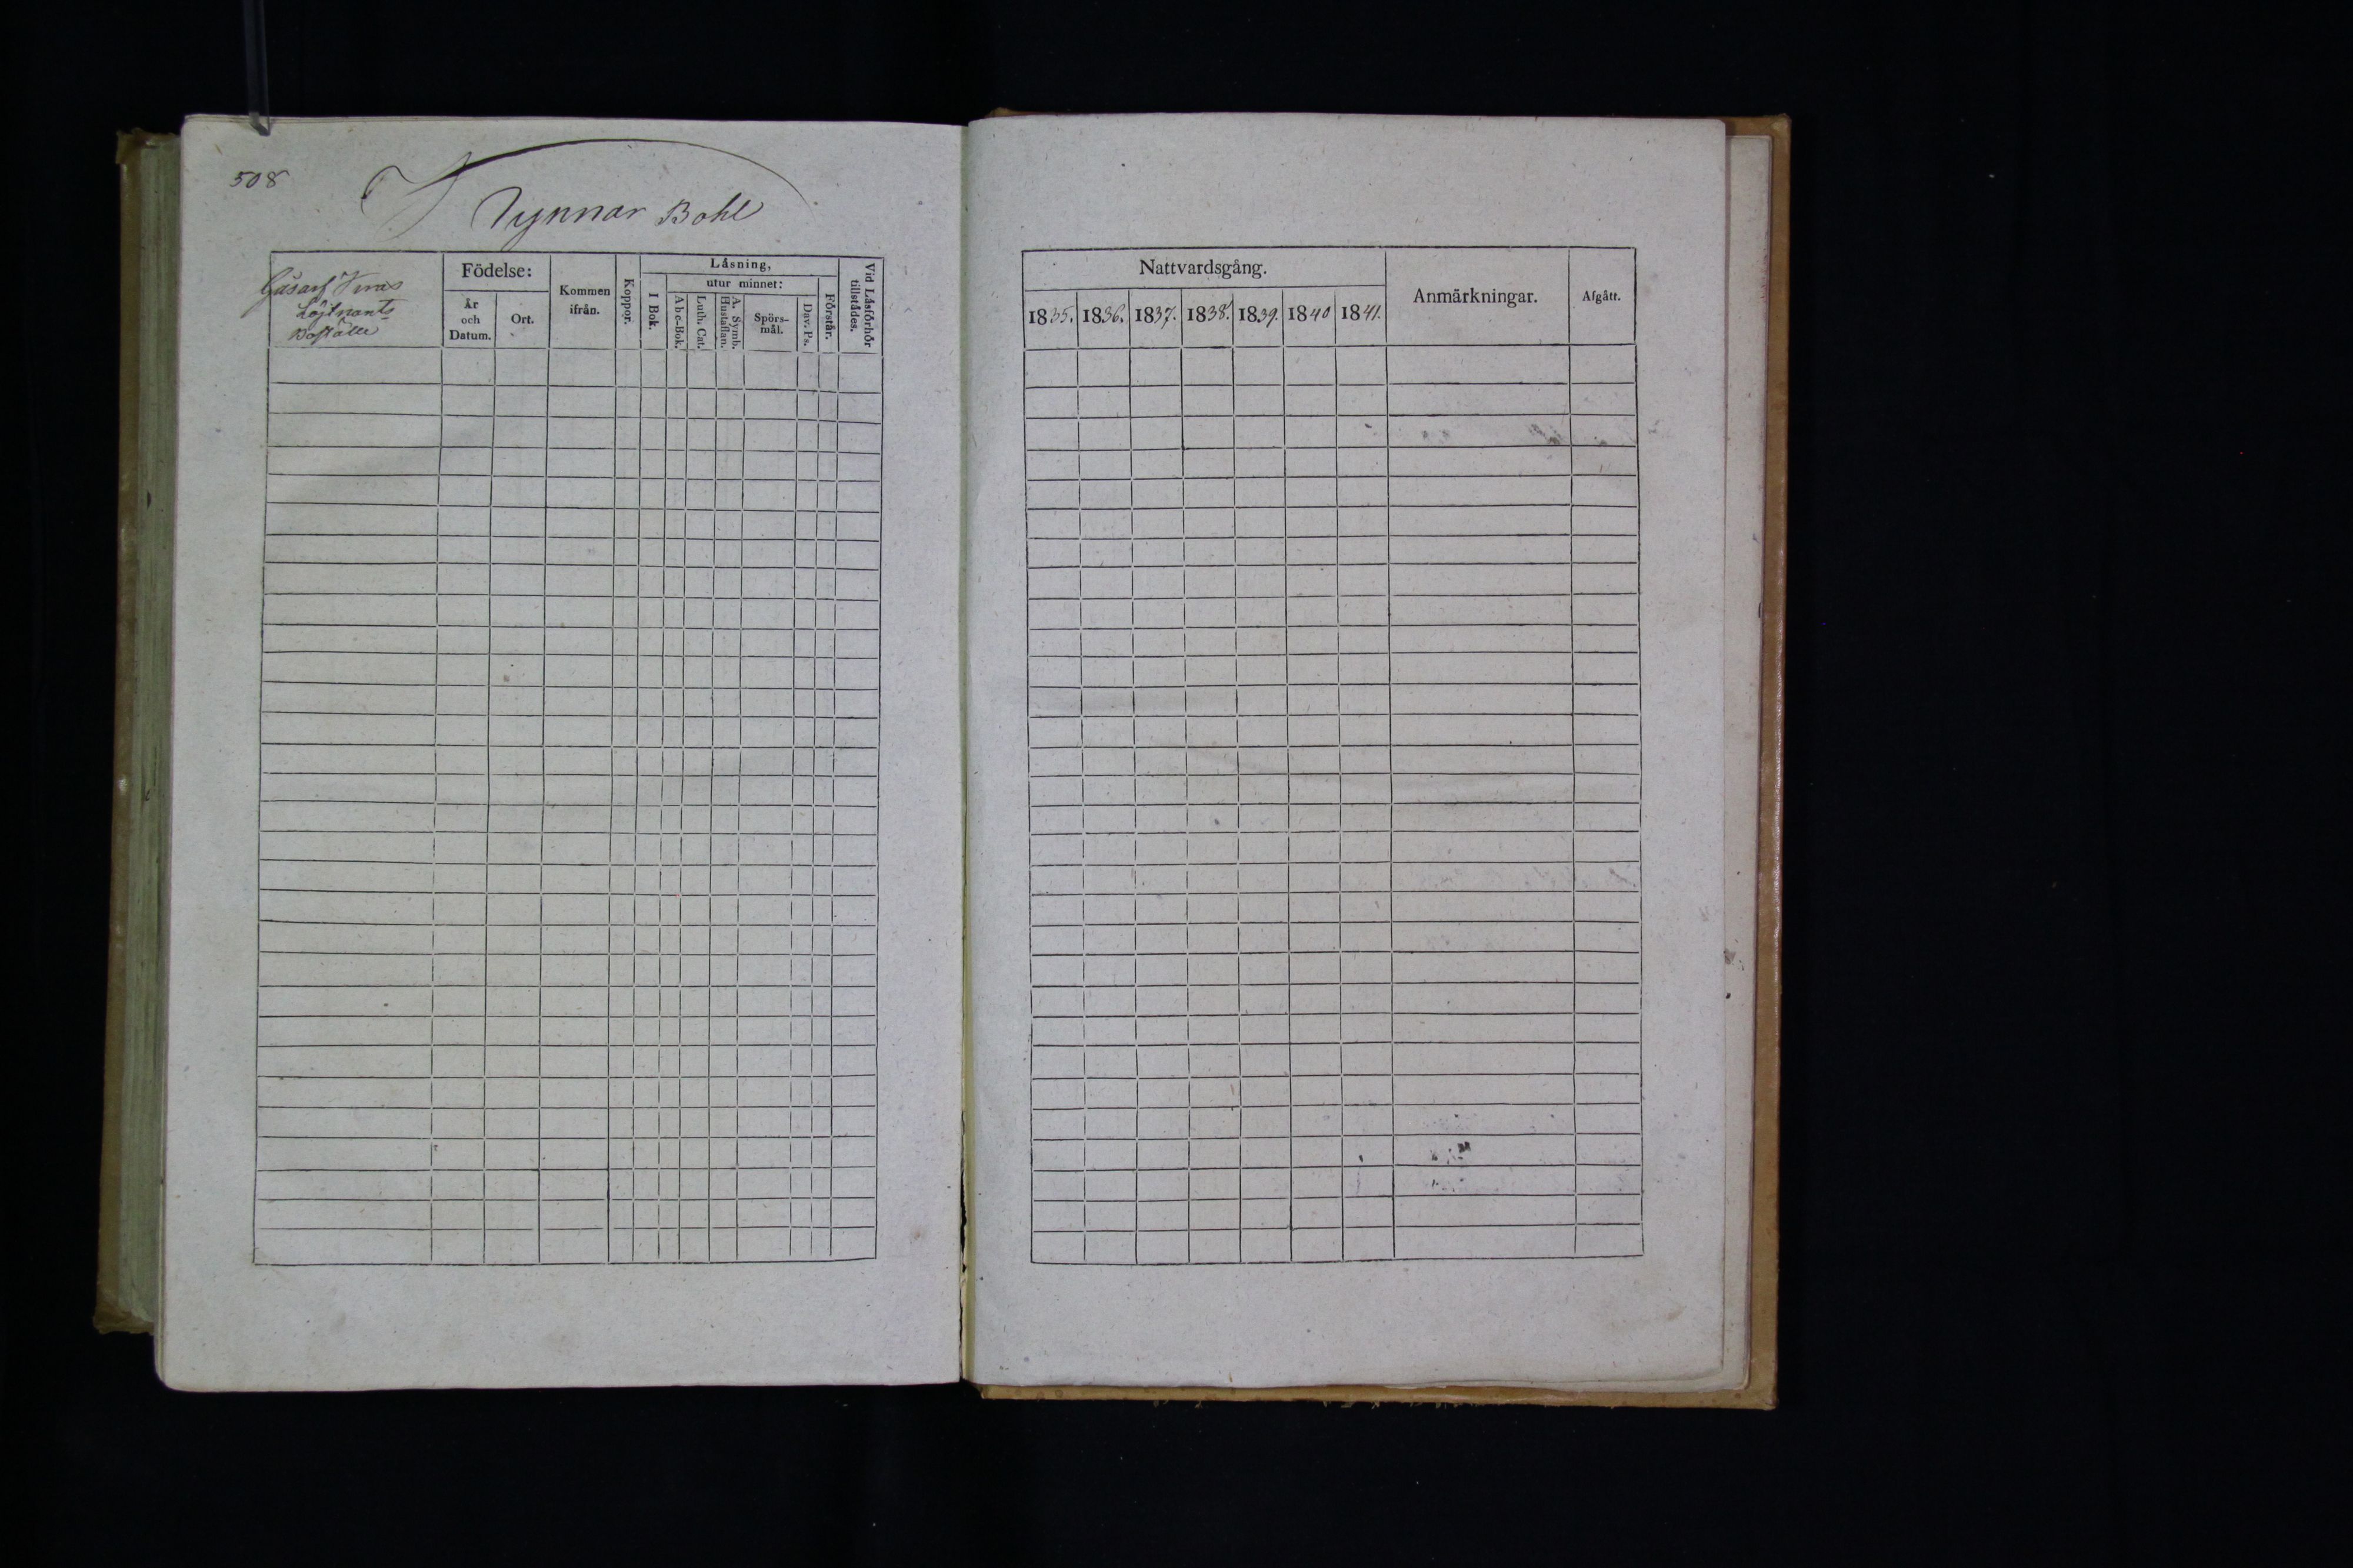 508
Nynnar Bohl
Löjtnants
Boställe
Födelse:
År
och
Datum.
Ort.
Kommen
ifrån.
Koppor.
Låsning,
I Bok.
utur minnet:
Abc-Bok.
Luth. Cat.
A. Symb.
Hustaflan.
Spörs-
mål.
Dav. Ps.
Förstår.
Vid Låsförhör
tillstådes.
Nattvardsgång.
1835. 1836. 1837. 1838. 1839. 1840 1841.
Anmärkningar.
Afgått.